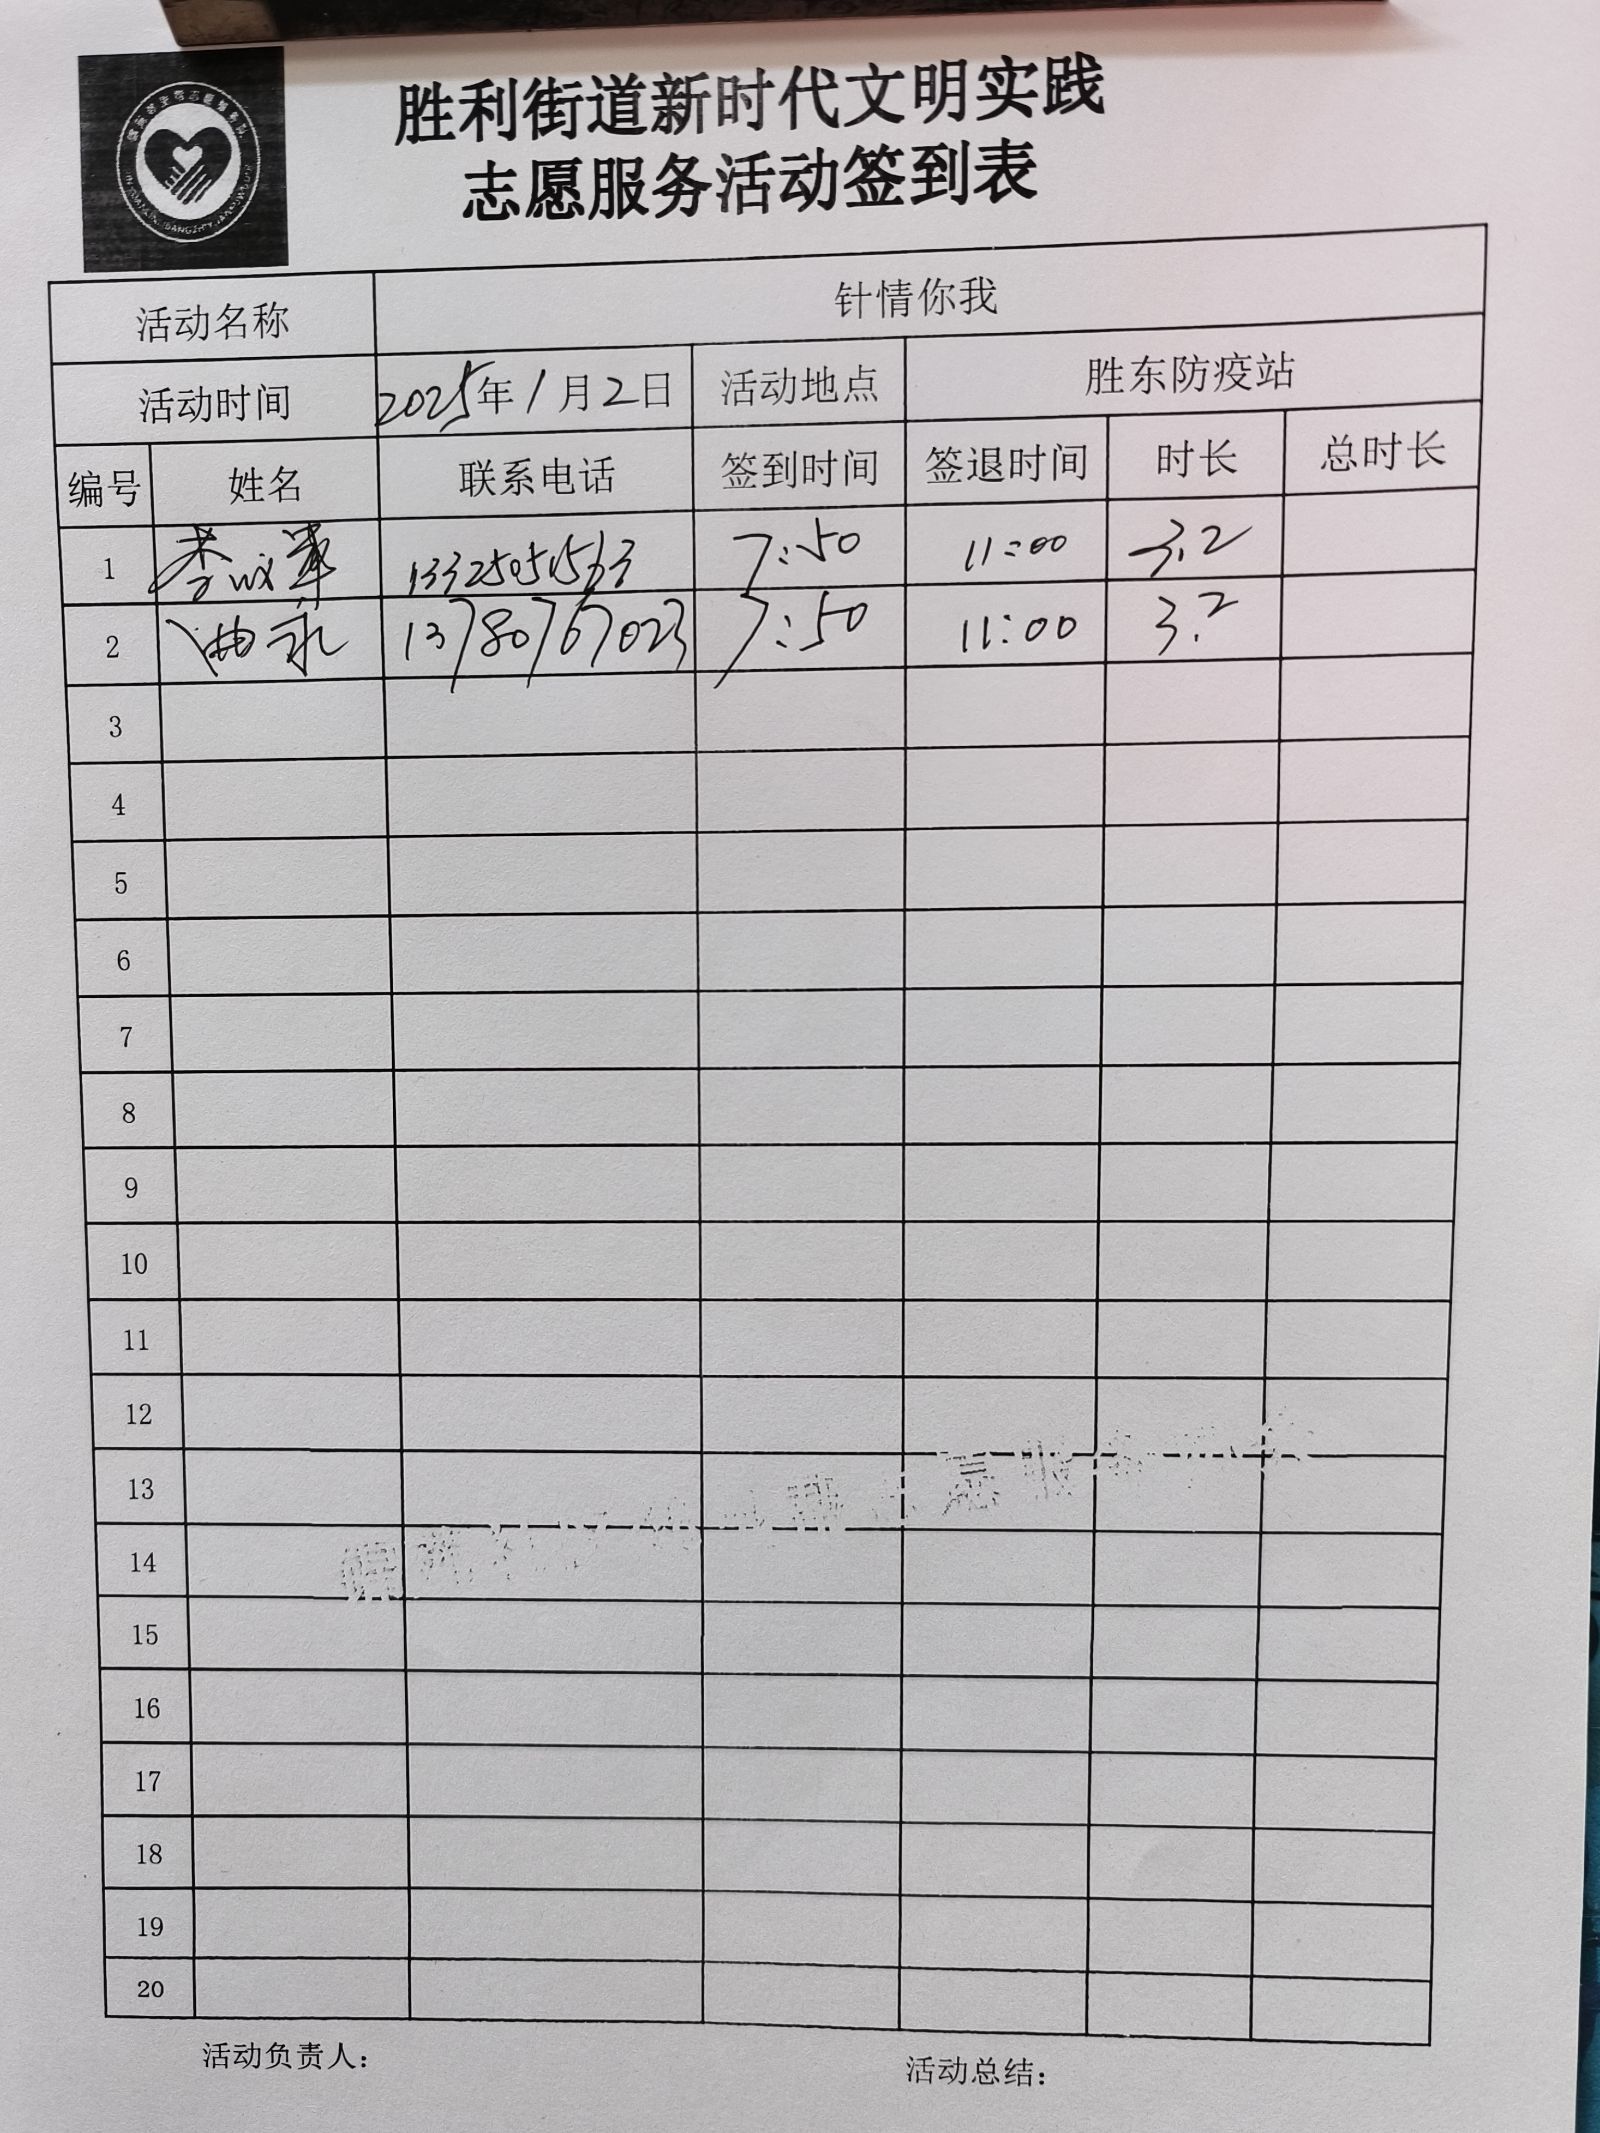 胜利街道新时代文明实践
志愿服务活动签到表
活动名称 针情你我
活动时间 2025年1月2日 活动地点 胜东防疫站
编号 姓名 联系电话 签到时间 签退时间 时长 总时长
1 李 13325051563 7:50 11:00 3.2
2 曲 13780767023 7:50 11:00 3.2
3
4
5
6
7
8
9
10
11
12
13
14
15
16
17
18
19
20
活动负责人： 活动总结：